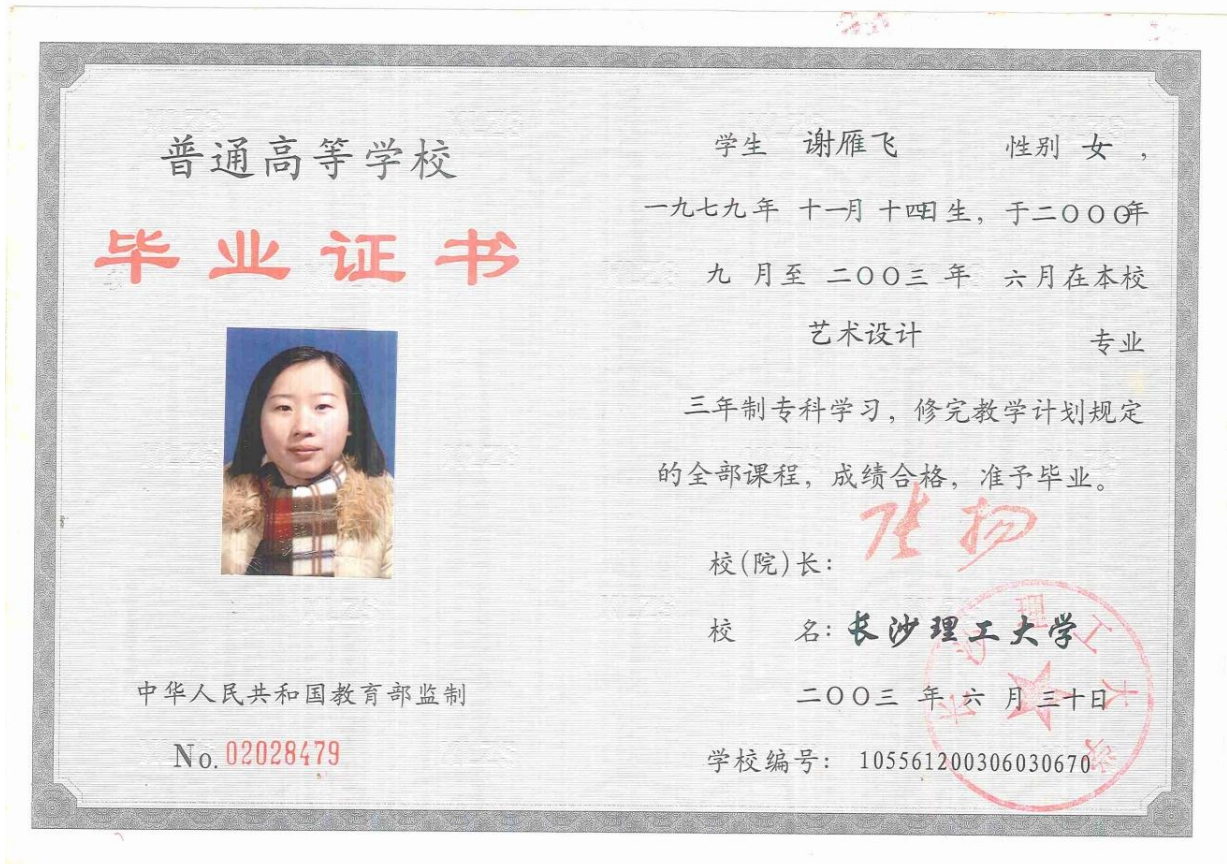 普通高等学校
毕业证书
中华人民共和国教育部监制
No. 02028479
学生 谢雁飞 性别 女 ，
一九七九年 十一月 十四日生，于二〇〇〇年
九 月至 二〇〇三 年 六月在本校
艺术设计 专业
三年制专科学习，修完教学计划规定
的全部课程，成绩合格，准予毕业。
校(院)长： 张扬
校 名：长沙理工大学
二〇〇三 年 六 月 三十日
学校编号： 105561200306030670
长沙理工大学